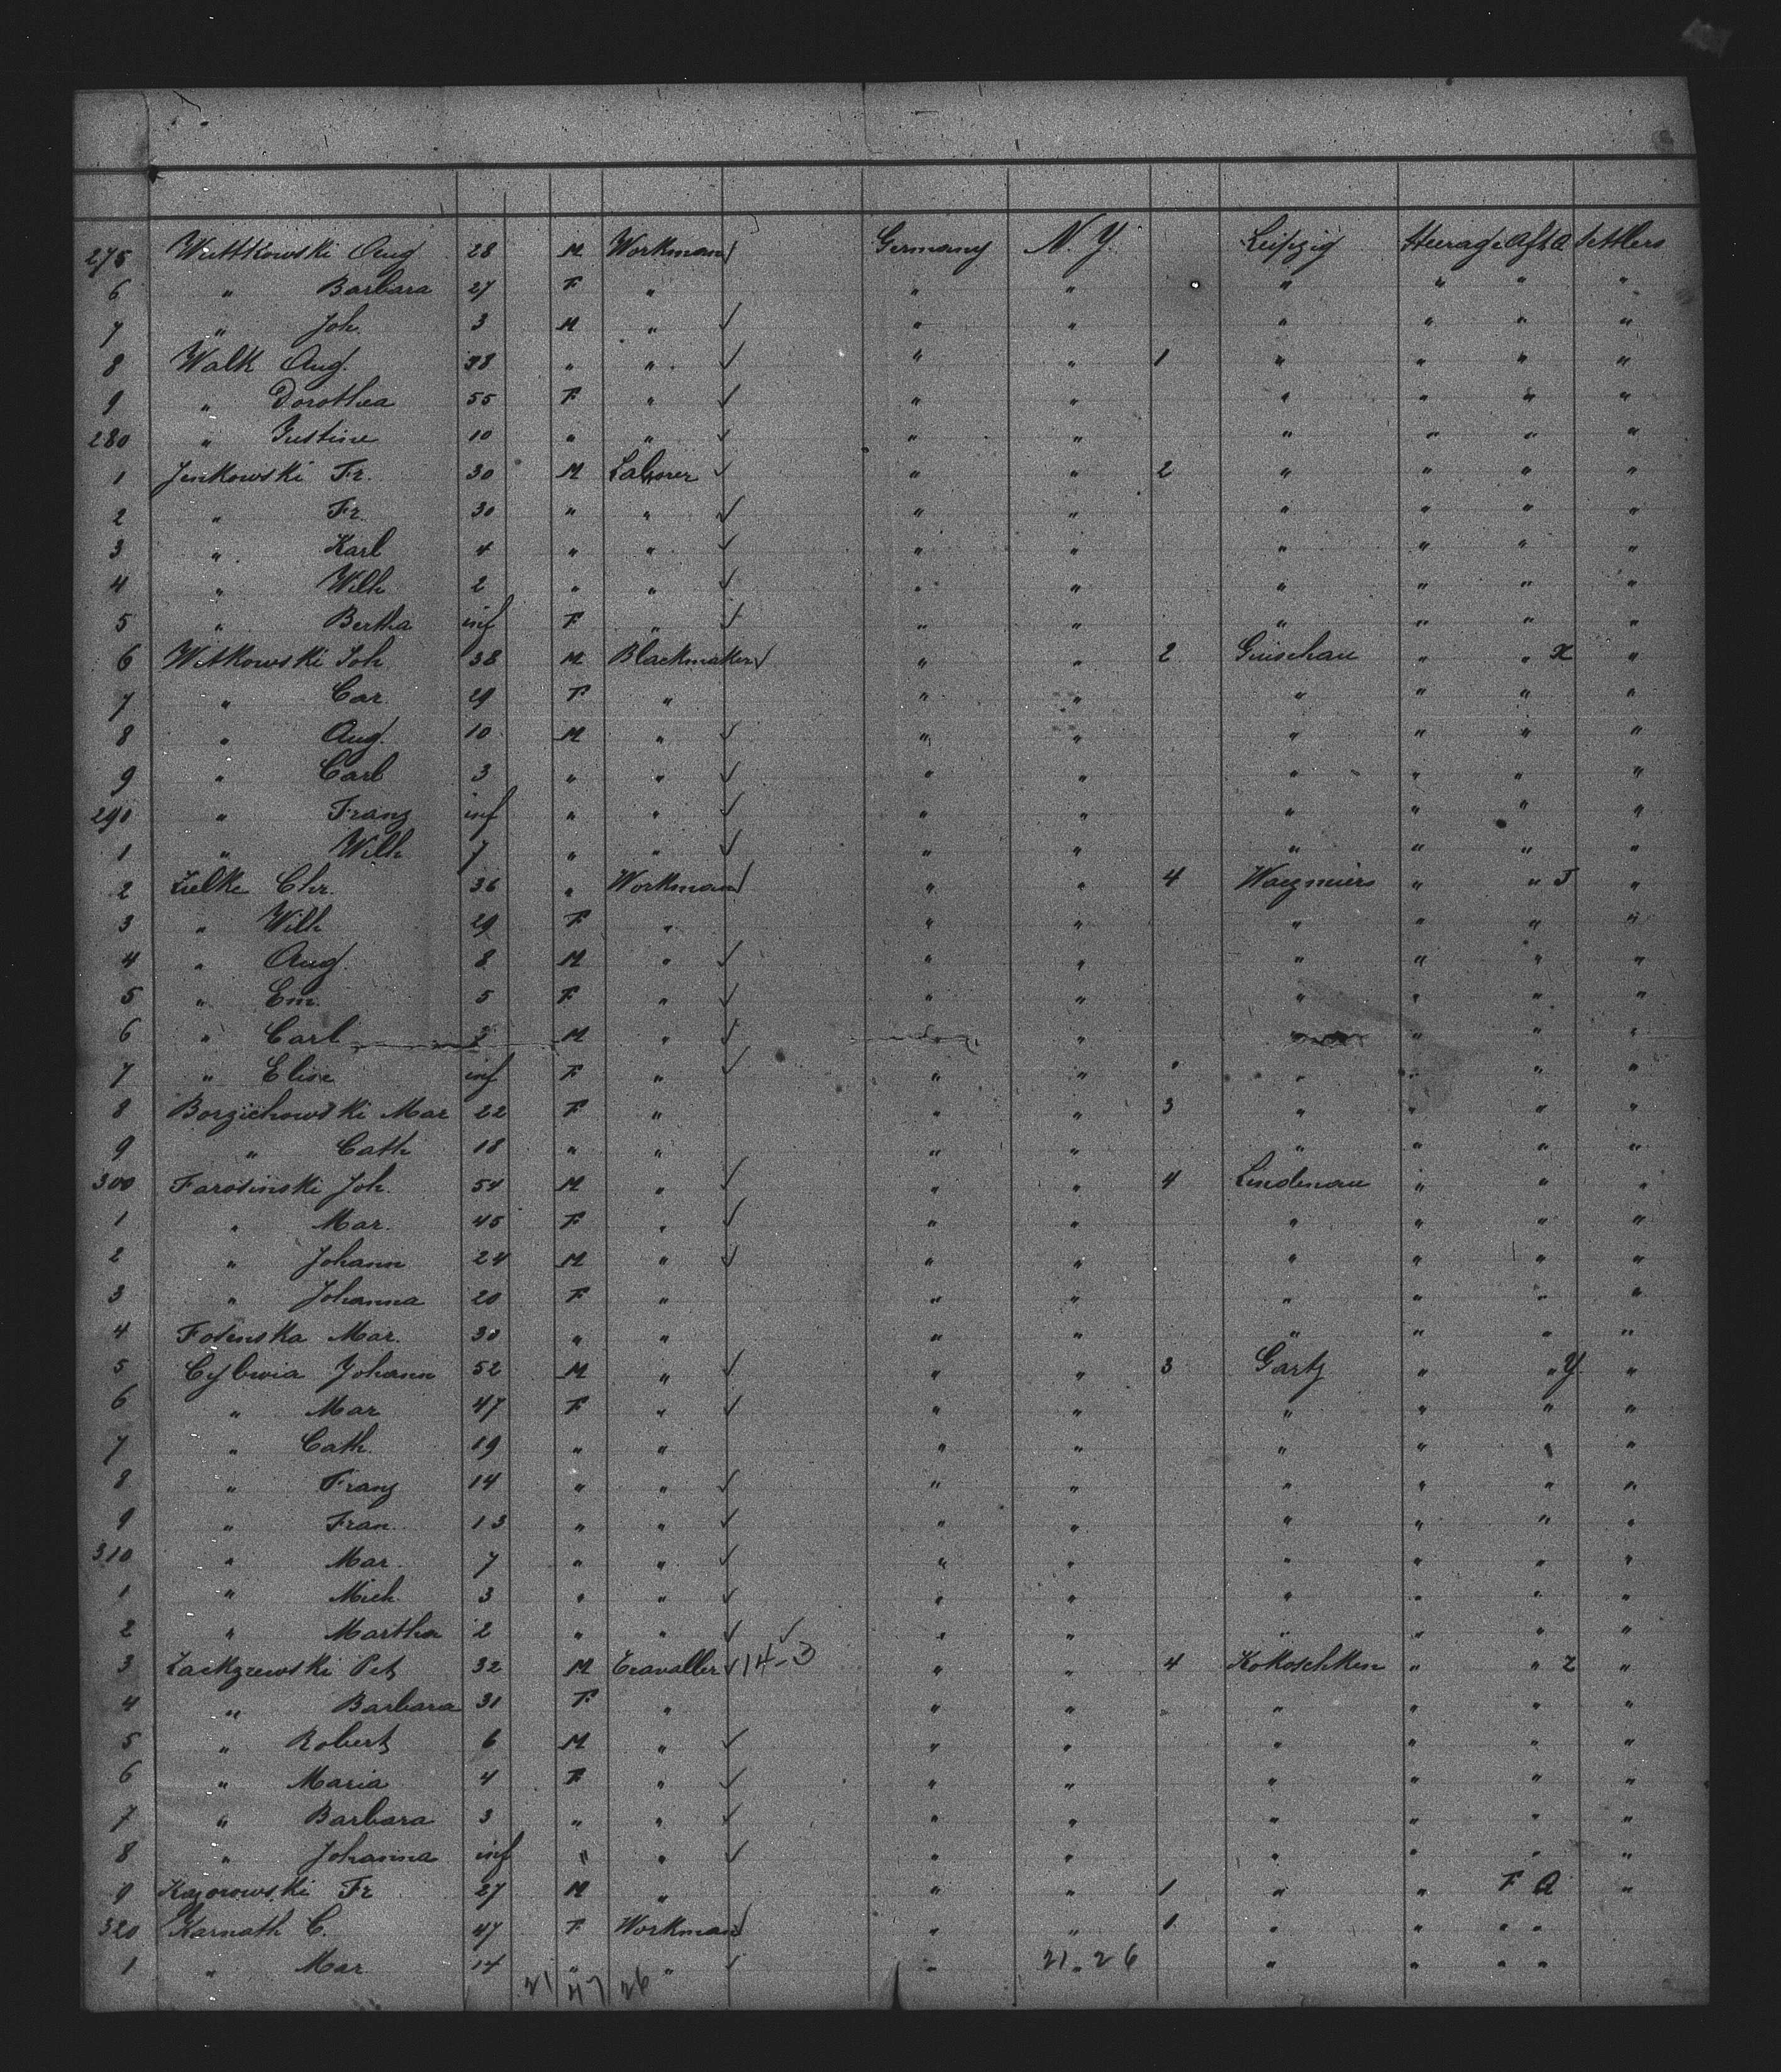 275 Wuttkowski Aug 28 M Workman ✓ Germany N. Y. Leipzig Steerage Aft A Settlers
6 " Barbara 27 F " " " " " " "
7 " Joh. 3 M " ✓ " " " " " "
8 Walk Aug. " " ✓ " " 1 " " " "
9 " Dorothea 55 F " ✓ " " " " " "
280 " Justine 10 " " ✓ " " " " " "
1 Jenkowski Fr. 30 M Laborer ✓ " " 2 " " " "
2 " Fr. 30 " " ✓ " " " " " "
3 " Karl 4 " " ✓ " " " " " "
4 " Wilh 2 " " ✓ " " " " " "
5 " Bertha inf F " ✓ " " " " " "
6 Witkowski Joh 38 M Blackmaker ✓ " " 2 Guischau " " X "
7 " Car. 29 F " " " " " " "
8 " Aug. 10 M " ✓ " " " " " "
9 " Carl 3 " " ✓ " " " " " "
290 " Franz inf " " ✓ " " " " " "
1 " Wilh 7 " " ✓ " " " " " "
2 Zielke Chr. 36 " Workman ✓ " " 4 " " J "
3 " Wilh 29 F " " " " " " "
4 " Aug. 8 M " ✓ " " " " " "
5 " Em. 5 F " ✓ " " " " " "
6 " Carl 3 M " ✓ " " " "
7 " Elise inf F " ✓ " " " " " "
8 Borzichowski Mar 22 F " " " 3 " " " "
9 " Cath 18 " " " " " " " "
300 Farosinski Joh. 54 M " ✓ " " 4 Lindenau " " "
1 " Mar. 45 F " ✓ " " " " " "
2 " Johann 24 M " ✓ " " " " " "
3 " Johanna 20 F " " " " " " "
4 Fosinska Mar. 30 " " " " " " " "
5 Cylwia Johann 52 M " ✓ " " 3 Gartz " " Y "
6 " Mar 47 F " ✓ " " " " " "
7 " Cath. 19 " " " " " " " "
8 " Franz 14 " " ✓ " " " " " "
9 " Fran. 13 " " ✓ " " " " " "
310 " Mar. 7 " " ✓ " " " " " "
1 " Mich 3 " " ✓ " " " " " "
2 " Martha 2 " " ✓ ✓ " " " " " "
3 Zackzrewski Pet 32 M Travaller ✓ 14-3 " " 4 Kokoschken " " Z "
4 " Barbara 31 F " " " " " " "
5 " Robert 6 M " ✓ " " " " " "
6 " Maria 4 F " ✓ " " " " " "
7 " Barbara 3 " " ✓ " " " " " "
8 " Johanna inf " " ✓ " " " " " "
9 Kazorowski Fr 27 M " " " 1 " " F A "
320 Karnath C. 47 F Workman ✓ " " 1 " " " "
1 " Mar 14 " " ✓ " 21 " 26 " " " "
21 47 26